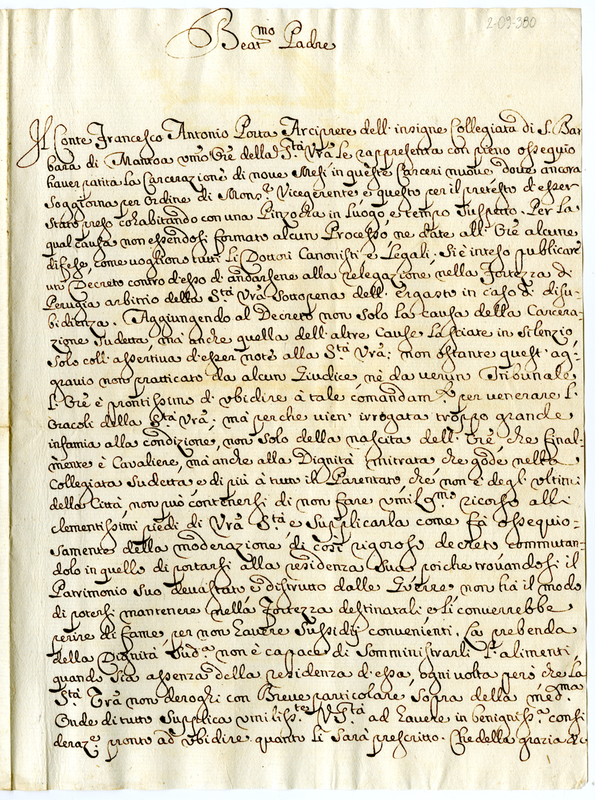 2-09-380
Beat.mo Padre
Il Conte Francesco Antonio Porta Arciprete dell'insigne Collegiata di S. Bar
bara di Mantoa vmo Ore della S.tà Vrã le rappresenta con pieno ossequio
haver patita la Carcerazione di nove Mesi in queste Carceri nuove, dove ancora
Soggiorna per Ordine di Mons.r Vicegerente e questo per il pretesto d'esser
stato preso cohabitando con una Pinzocha in luogo e tempo suspetto. Per la
qual causa non essendosi formato alcun Processo, ne date all'Ore alcune
difese, come vogliono tutti li Dottori Canonisti e Legali, si è inteso publicare
un Decreto contro d'esso di andarsene alla relegazione nella Fortezza di
Perugia arbitrio della S.tà Vrã sotto pena dell'Ergasto in caso di disu-
bidienza. Aggiungendo al Decreto non solo la causa della Carcera-
zione sudetta, mà anche quella dell'altre Cause lasciate in silenzio
solo coll'assertiva d'esser note alla S.tà Vrã; non ostante quest'ag-
gravio non pratticato da alcun Giudice nè da verun Tribunale
l'Ore è prontissimo d'vbidire à tale comandam.to per venerare l'
Oracoli della S.tà Vrã; mà perche vien' irrogata troppo grande
infamia alla condizione, non solo della nascita dell'Ore che final-
mente è Cavaliere, mà anche alla Dignità Mitrata che gode nella
Collegiata sudetta e di più à tutto il Parentato, che non è degl'vltimi
della Città, non può contenersi di non fare vmil.mo ricorso alli
clementissimi piedi di Vrã S.tà e supplicarla come fà ossequio-
samente della moderazione di così rigoroso decreto commutan-
dolo in quello di portarsi alla residenza sua, poiche trovandosi il
Patrimonio suo devastato e distrutto dalle Guerre non hà il modo
di potersi mantenere nella Fortezza destinatali e li converrebbe
perire di fame, per non havere sussidij convenienti. La prebenda
della Dignità sud.a non è capace di somministrarli l'alimenti
quando stà assenza della residenza d'essa, ogni volta però che la
S.tà Vrã non deroghi con Breve particolare sopra della med.ma
Onde di tutto supplica vmiliss.te V S.tà ad havere in benigniss.a consi
deraz.e pronto ad vbidire quanto li sarà prescritto. Che della grazia &c